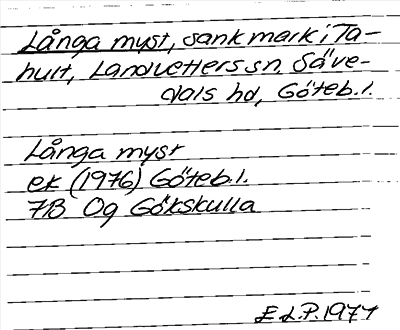 Långa myst, sank mark i Ta-
hult, Landvetters sn. Säve-
dals hd, Göteb.l.
Långa myst
ek (1976) Göteb.l.
7B Og Gökskulla
E.L.P. 1977